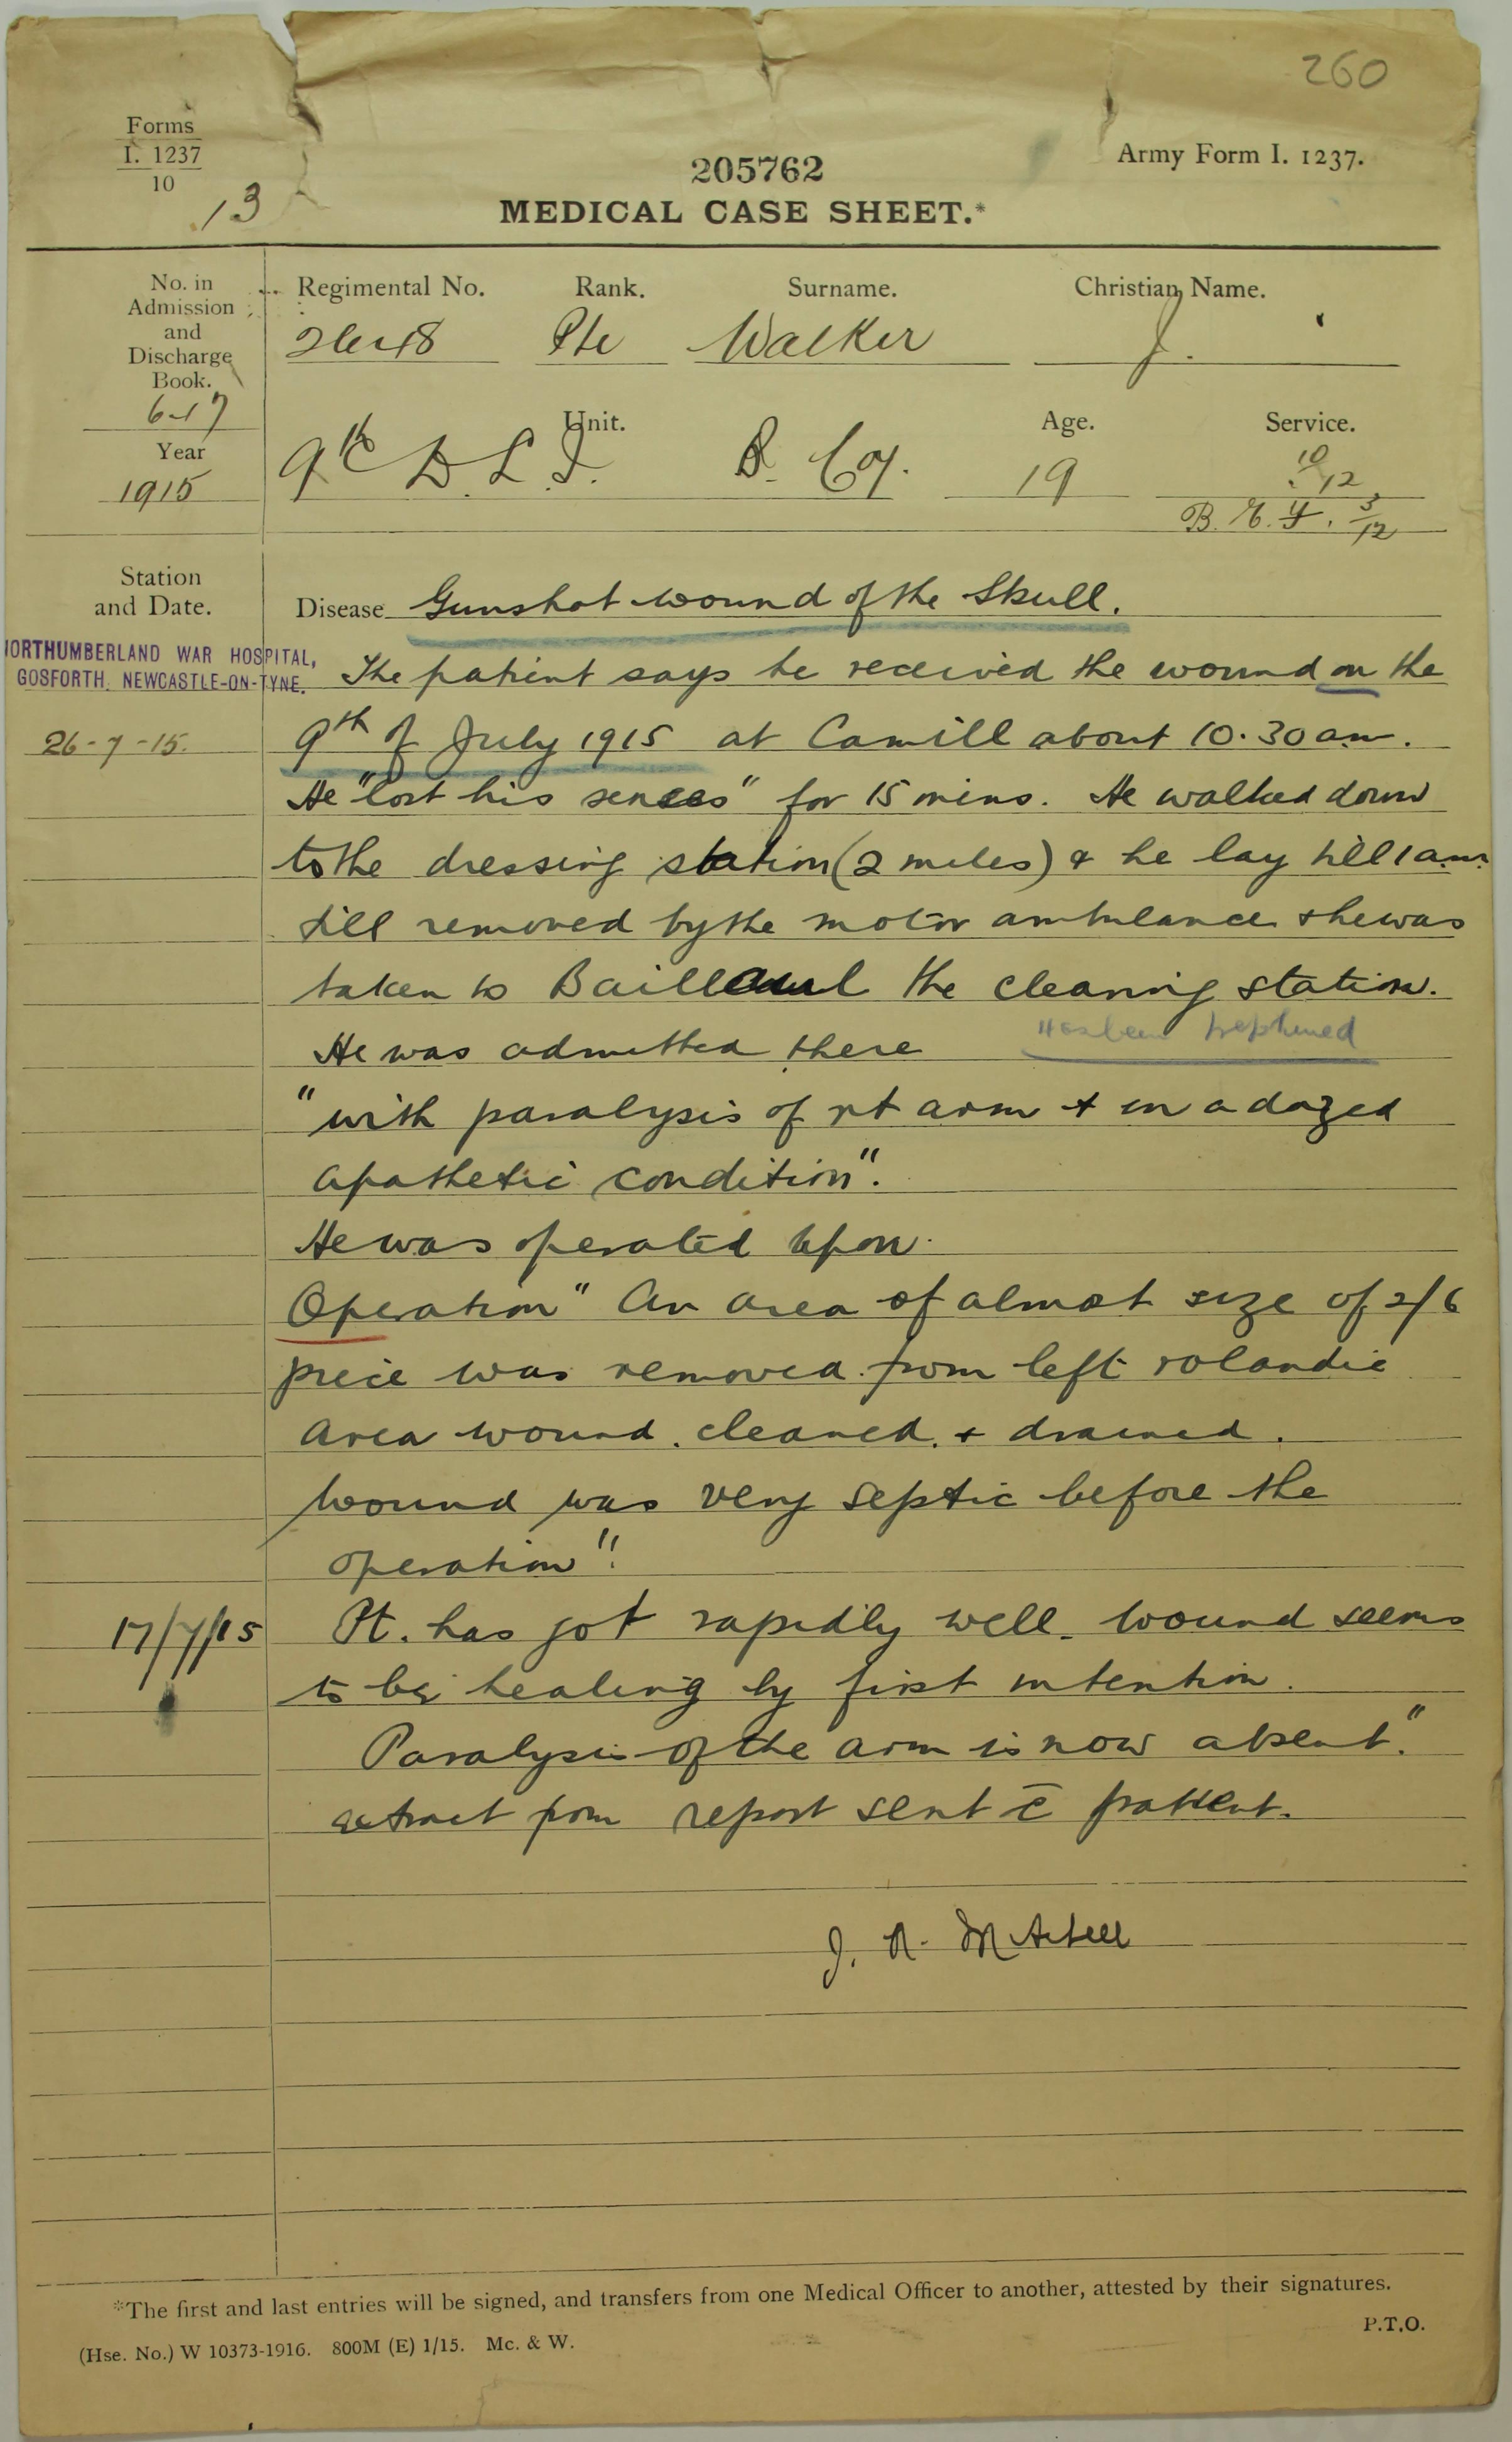 260
Forms
I. 1237
10
13
Army Form I. 1237.
205762
MEDICAL CASE SHEET.*
No. in
Admission
and
Discharge
Book.
Year
1915
Regimental No. Rank. Surname. Christian Name.
Pte Walker J.
Unit. Age. Service.
9th D.L.I. B. Coy. 19 10/12
B.E.F. 3/12
Station
and Date.
Disease Gunshot wound of the Skull.
NORTHUMBERLAND WAR HOSPITAL,
GOSFORTH, NEWCASTLE-ON-TYNE.
The patient says he received the wound on the
26-7-15.
9th of July 1915 at about 10.30 am.
He "lost his senses" for 15 mins. He walked down
to the dressing station (2 miles) & he lay till 1 a.m.
till removed by the motor ambulance & he was
taken to Bailleul the clearing station.
He was admitted there
Has been trephined
"with paralysis of rt arm + in a dazed
apathetic condition".
He was operated upon.
Operation "An area of almost size of 2/6
piece was removed from left rolandic
area wound cleaned + drained.
Wound was very septic before the
operation".
17/7/15
Pt. has got rapidly well. Wound seems
to be healing by first intention.
Paralysis of the arm is now absent."
extract from report sent c̄ patient.
J. R. Mitchell
*The first and last entries will be signed, and transfers from one Medical Officer to another, attested by their signatures.
P.T.O.
(Hse. No.) W 10373-1916. 800M (E) 1/15. Mc. & W.